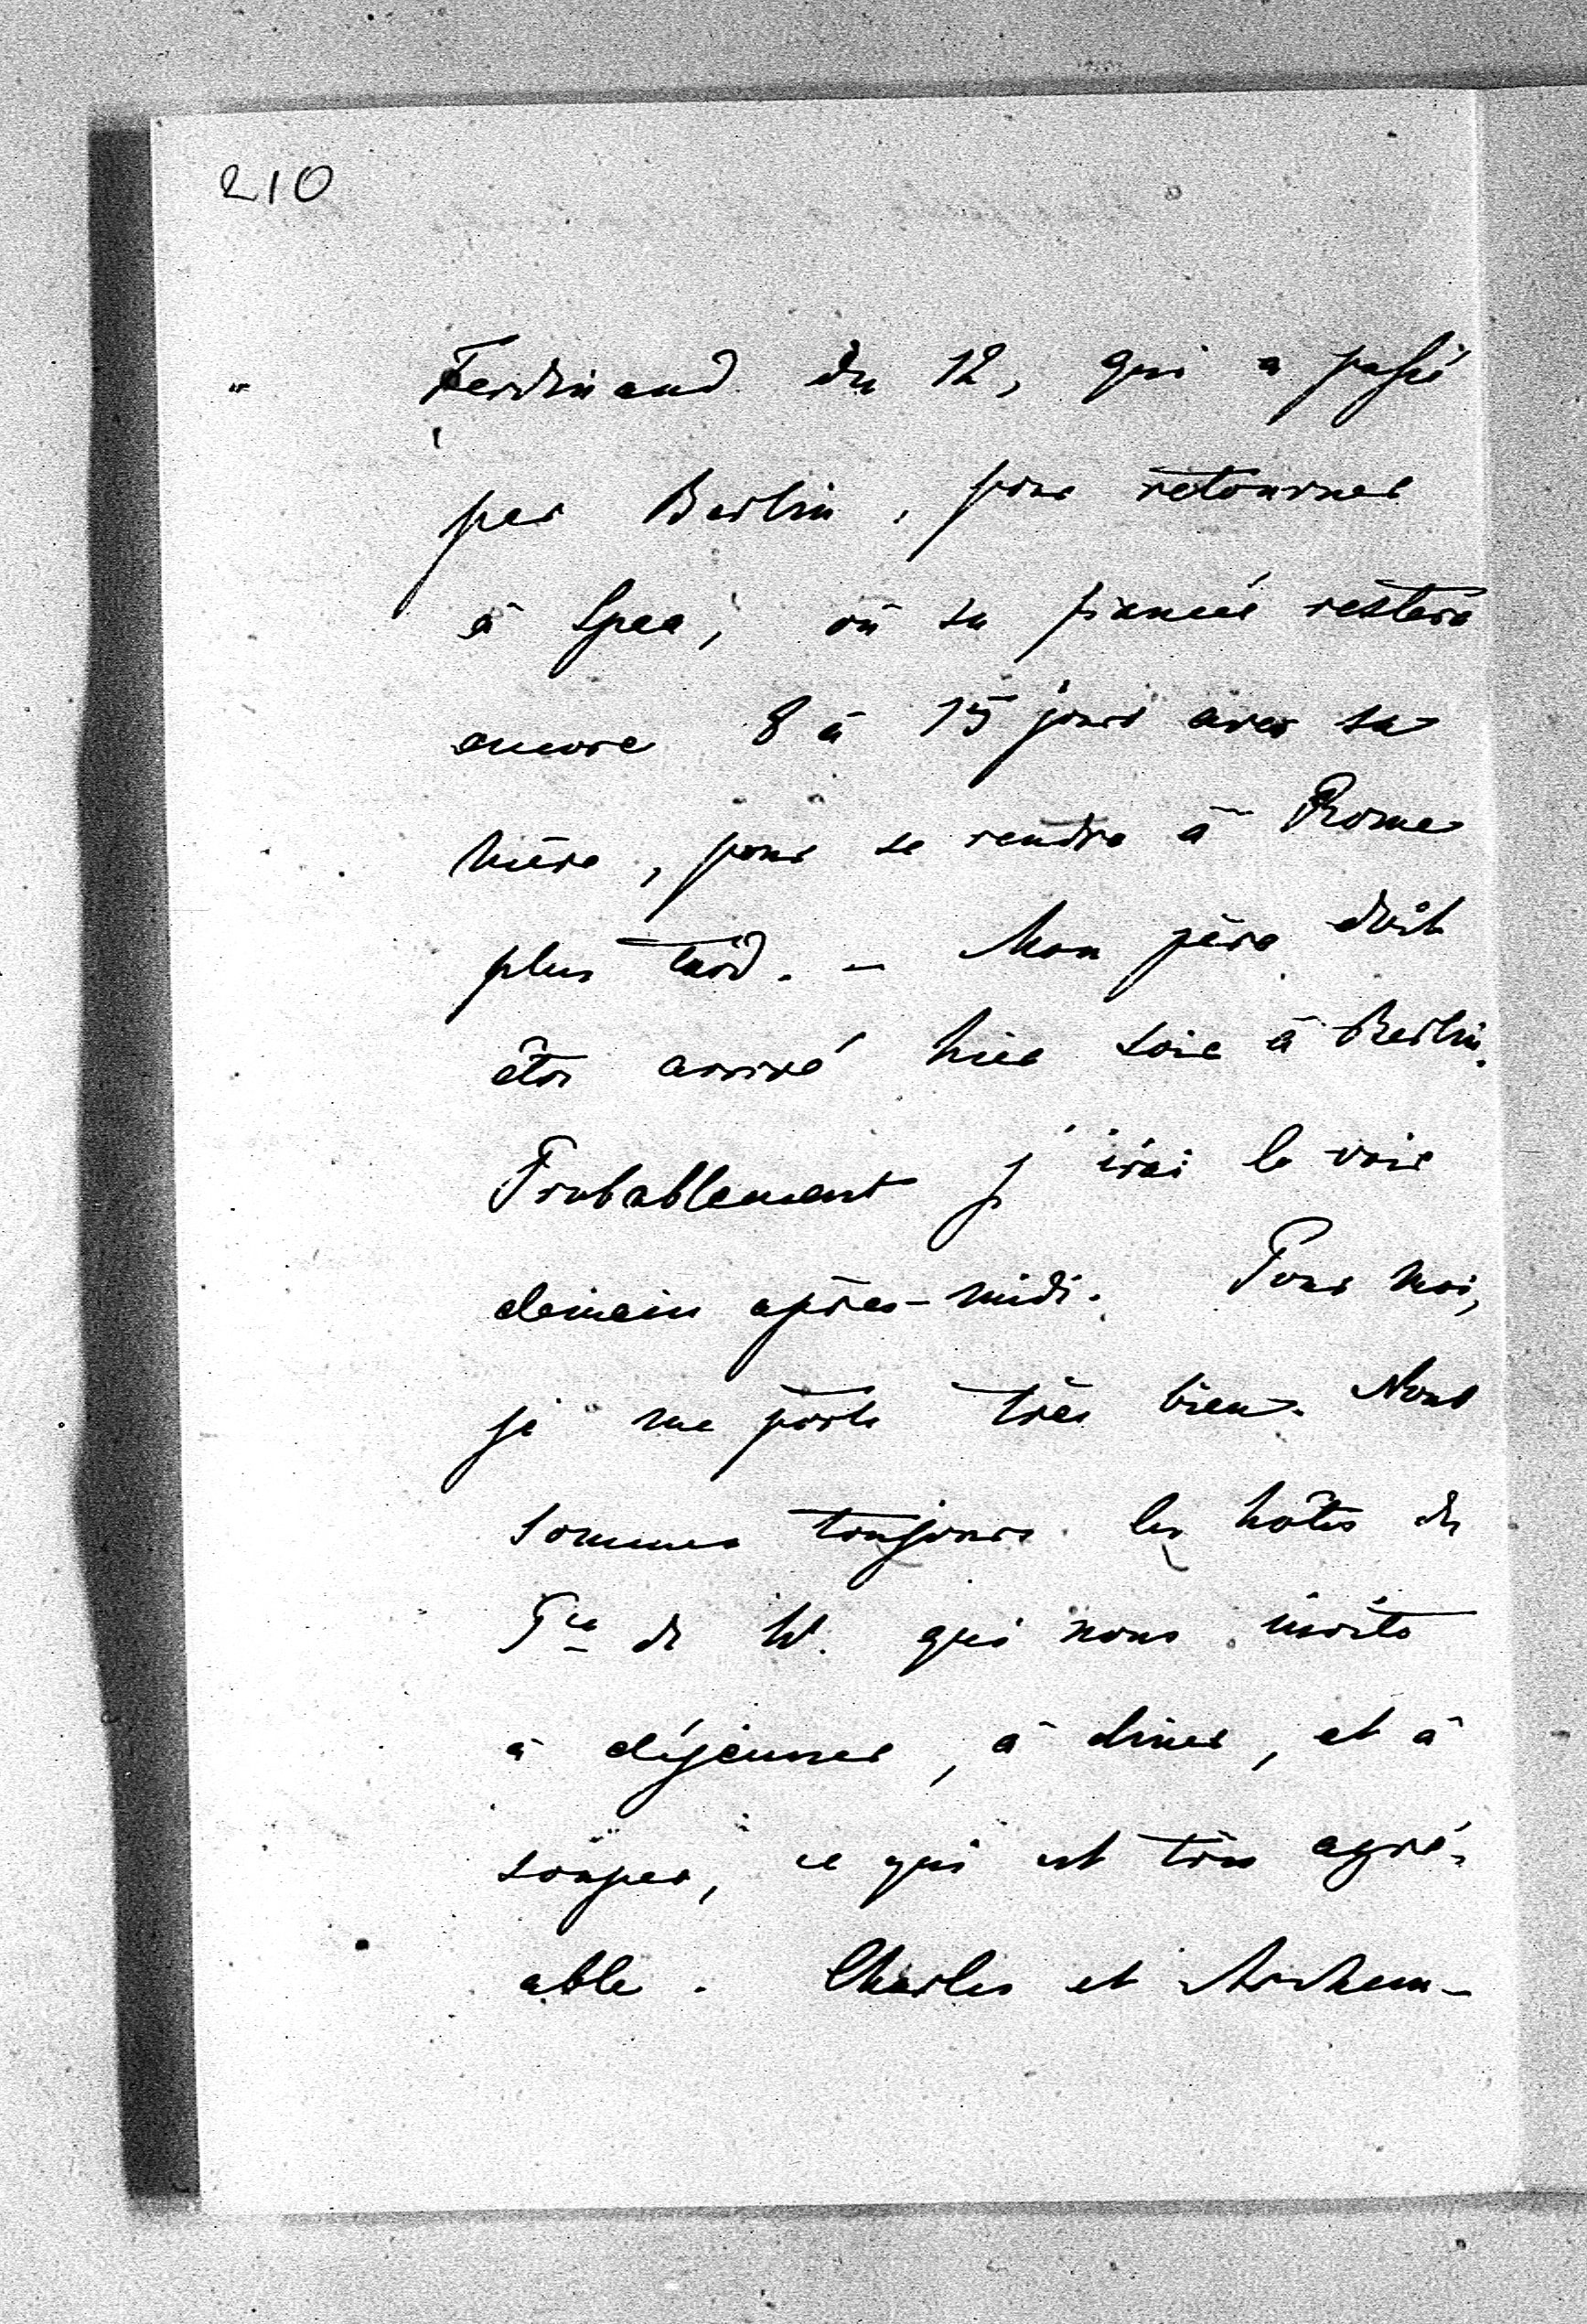 210
Ferdinand du 12, qui a passé
par Berlin, pour retourner
à Spaa, où sa fiancée restera
encore 8 à 15 jours avec sa
mère, pour se rendre à Rome
plus tard. - Mon père doit
être arrivé hier soir à Berlin.
Probablement j'irai le voir
demain après-midi. Pour moi,
je me porte très bien. Nous
sommes toujours les hôtes du
Pce de W. qui nous invite
à déjeuner, à dîner, et à
souper, ce qui est très agré-
able. Charles et